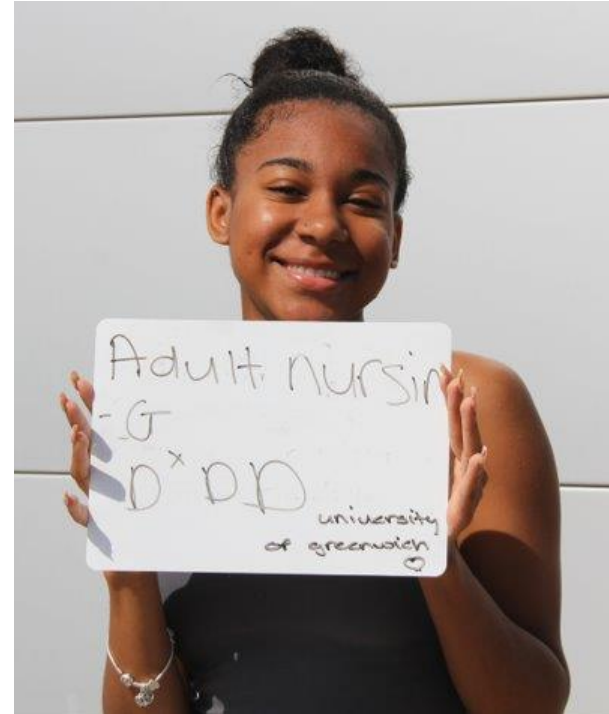 Adult nursin
-G
D* DD
university
of greenwich ♡